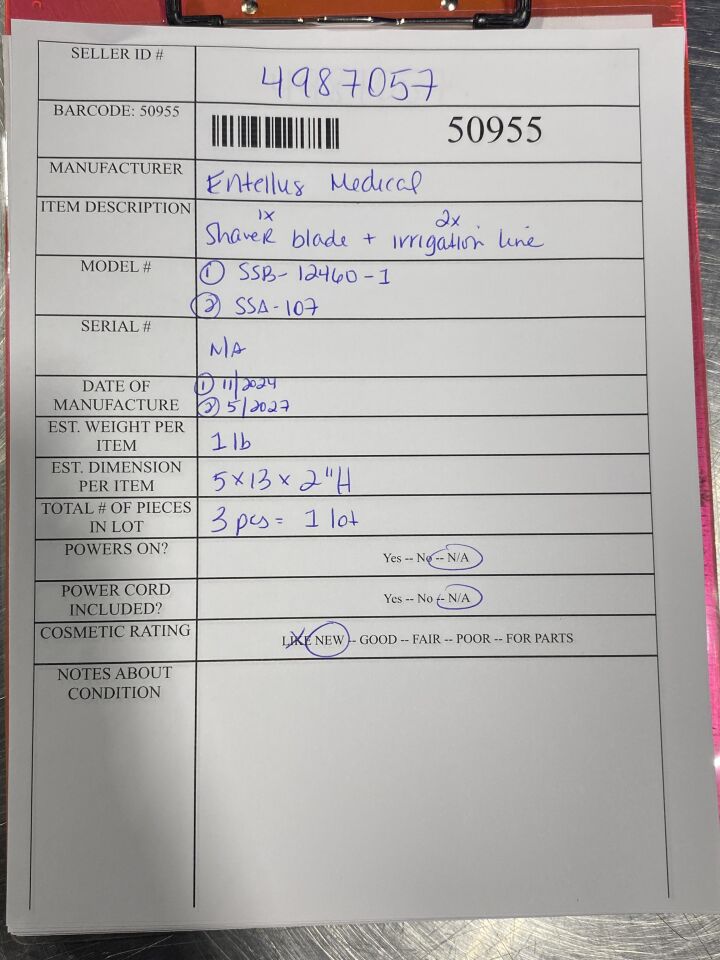 SELLER ID #
4987057
BARCODE: 50955
50955
MANUFACTURER
Entellus Medical
ITEM DESCRIPTION
1x 2x
Shaver blade + irrigation line
MODEL #
① SSB-12460-1
② SSA-107
SERIAL #
N/A
DATE OF
MANUFACTURE
① 11/2024
② 5/2027
EST. WEIGHT PER
ITEM
1 lb
EST. DIMENSION
PER ITEM
5 x 13 x 2"H
TOTAL # OF PIECES
IN LOT
3 pcs = 1 lot
POWERS ON?
Yes -- No -- N/A
POWER CORD
INCLUDED?
Yes -- No -- N/A
COSMETIC RATING
LIKE NEW -- GOOD -- FAIR -- POOR -- FOR PARTS
NOTES ABOUT
CONDITION